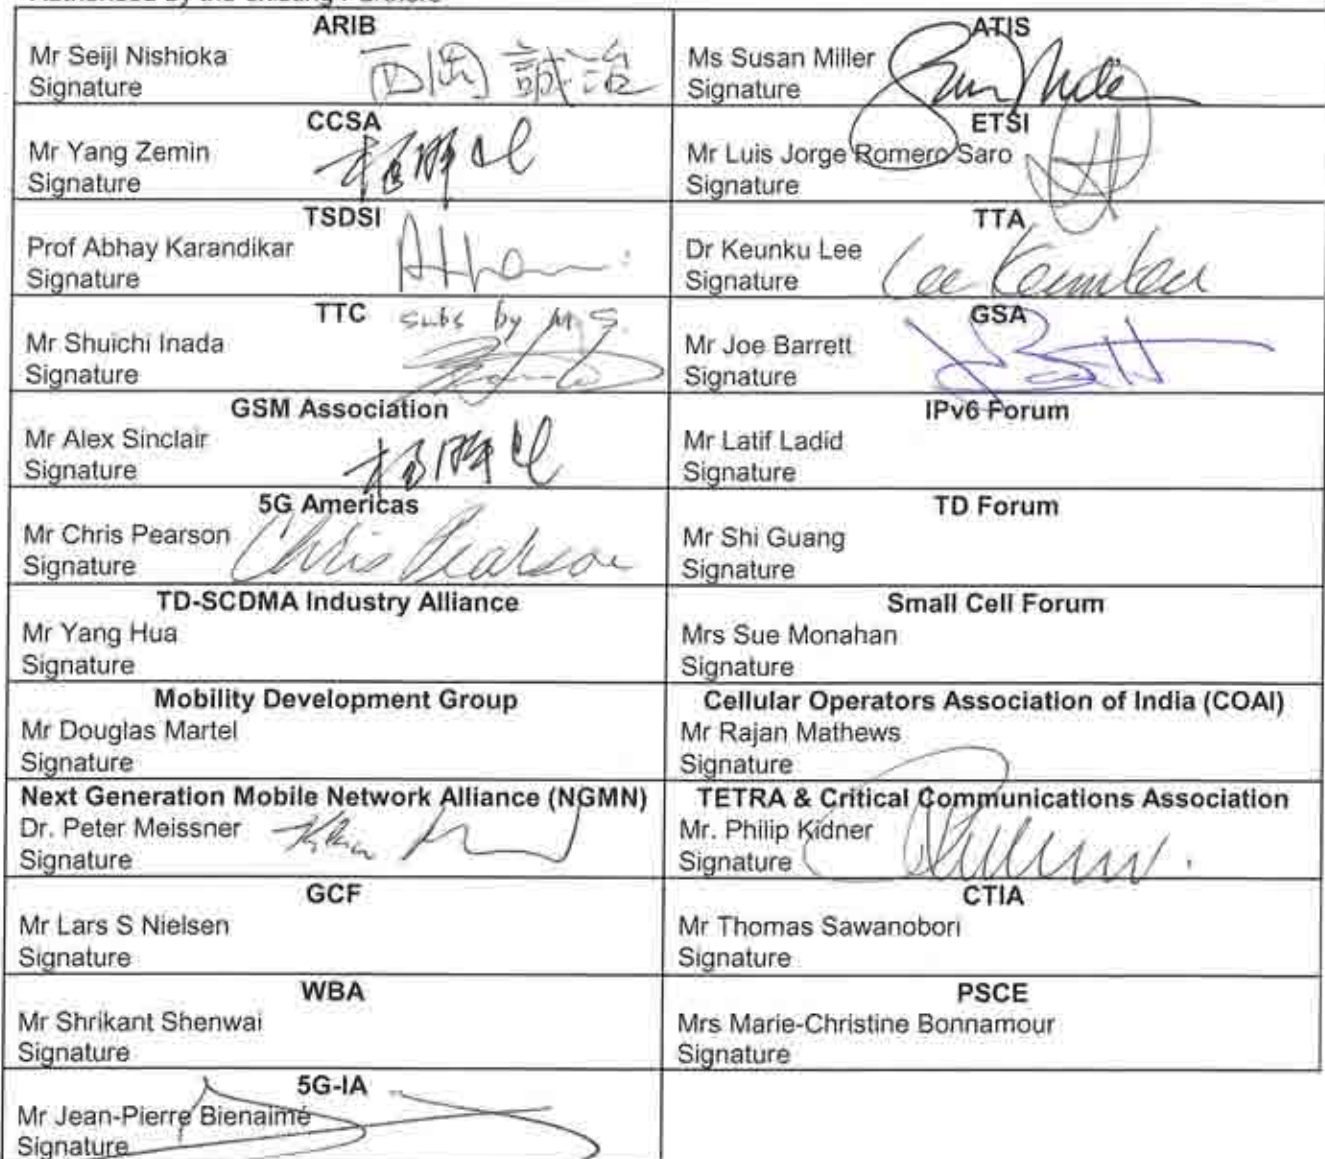 Authorised by the existing Partners
ARIB
Mr Seiji Nishioka
Signature 西岡 誠治
ATIS
Ms Susan Miller
Signature
CCSA
Mr Yang Zemin
Signature
ETSI
Mr Luis Jorge Romero Saro
Signature
TSDSI
Prof Abhay Karandikar
Signature
TTA
Dr Keunku Lee
Signature
TTC subs by M.S.
Mr Shuichi Inada
Signature
GSA
Mr Joe Barrett
Signature
GSM Association
Mr Alex Sinclair
Signature
IPv6 Forum
Mr Latif Ladid
Signature
5G Americas
Mr Chris Pearson
Signature Chris Pearson
TD Forum
Mr Shi Guang
Signature
TD-SCDMA Industry Alliance
Mr Yang Hua
Signature
Small Cell Forum
Mrs Sue Monahan
Signature
Mobility Development Group
Mr Douglas Martel
Signature
Cellular Operators Association of India (COAI)
Mr Rajan Mathews
Signature
Next Generation Mobile Network Alliance (NGMN)
Dr. Peter Meissner
Signature
TETRA & Critical Communications Association
Mr. Philip Kidner
Signature
GCF
Mr Lars S Nielsen
Signature
CTIA
Mr Thomas Sawanobori
Signature
WBA
Mr Shrikant Shenwai
Signature
PSCE
Mrs Marie-Christine Bonnamour
Signature
5G-IA
Mr Jean-Pierre Bienaimé
Signature